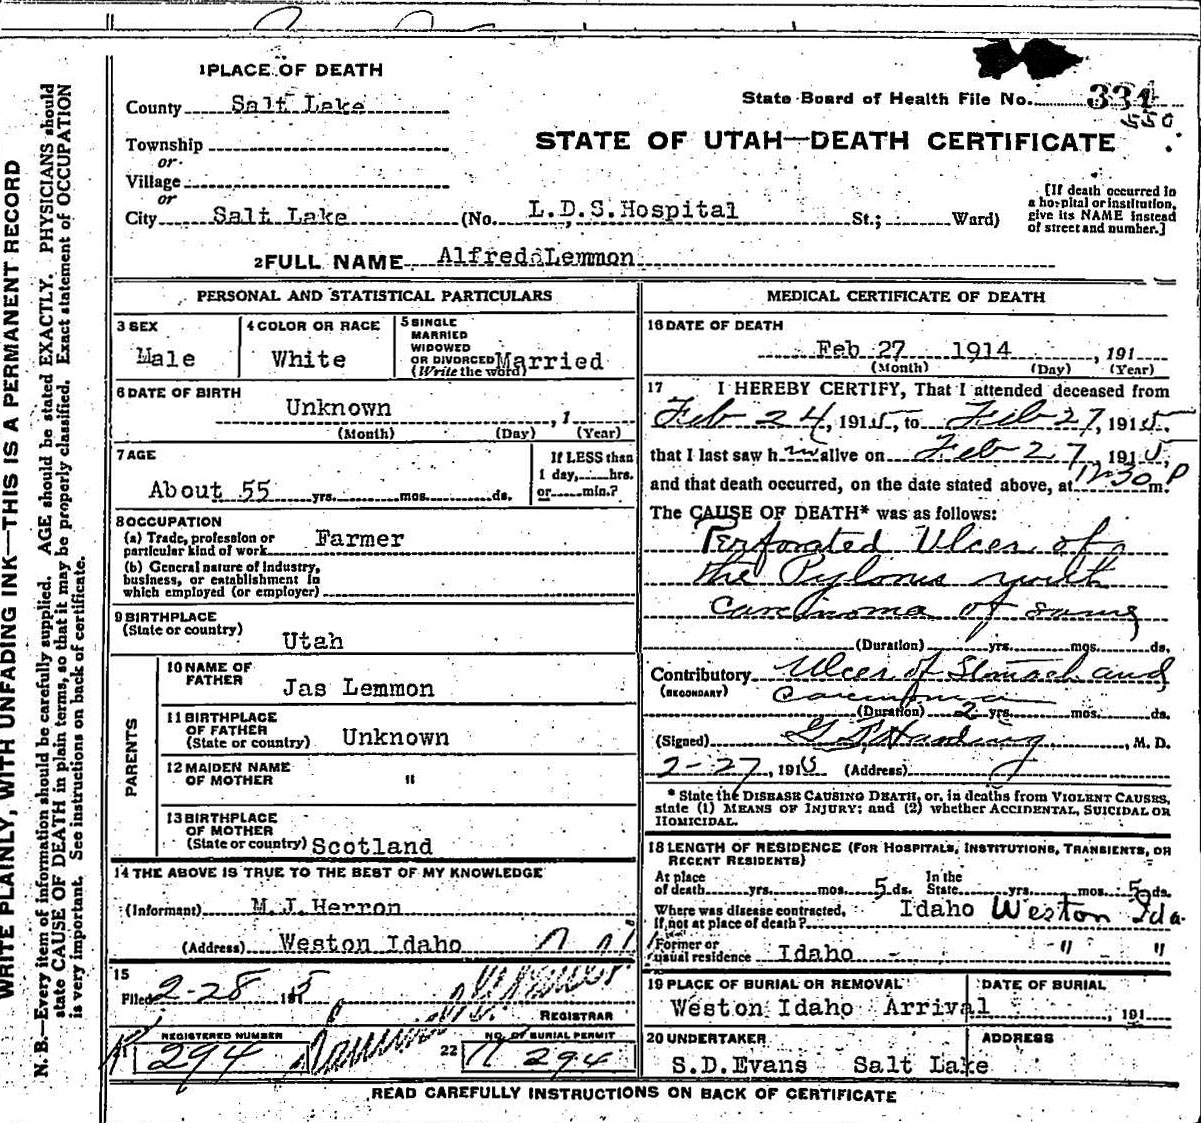 1 PLACE OF DEATH
County Salt Lake
State Board of Health File No. 334
550
STATE OF UTAH—DEATH CERTIFICATE
Township
or
Village
or
City Salt Lake (No. L.D.S.Hospital St.; Ward)
[If death occurred in a hospital or institution, give its NAME instead of street and number.]
2 FULL NAME Alfred Lemmon
PERSONAL AND STATISTICAL PARTICULARS
3 SEX
Male
4 COLOR OR RACE
White
5 SINGLE
MARRIED
WIDOWED
OR DIVORCED Married
(Write the word)
6 DATE OF BIRTH
Unknown , 1
(Month) (Day) (Year)
7 AGE
About 55 yrs. mos. ds.
If LESS than
1 day, hrs.
or min.?
8 OCCUPATION
(a) Trade, profession or
particular kind of work Farmer
(b) General nature of industry,
business, or establishment in
which employed (or employer)
9 BIRTHPLACE
(State or country) Utah
PARENTS
10 NAME OF
FATHER Jas Lemmon
11 BIRTHPLACE
OF FATHER
(State or country) Unknown
12 MAIDEN NAME
OF MOTHER "
13 BIRTHPLACE
OF MOTHER
(State or country) Scotland
14 THE ABOVE IS TRUE TO THE BEST OF MY KNOWLEDGE
(Informant) M.J.Herron
(Address) Weston Idaho
15
Filed 2-28 1915
REGISTRAR
REGISTERED NUMBER
21 294
NO. OF BURIAL PERMIT
22 294
MEDICAL CERTIFICATE OF DEATH
16 DATE OF DEATH
Feb 27 1914 , 191
(Month) (Day) (Year)
17 I HEREBY CERTIFY, That I attended deceased from
Feb 24, 1915, to Feb 27, 1915,
that I last saw h im alive on Feb 27, 1915,
and that death occurred, on the date stated above, at 12-30 P m.
The CAUSE OF DEATH* was as follows:
Perforated Ulcer of
the Pylorus with
carcinoma of same
(Duration) yrs. mos. ds.
Contributory Ulcer of Stomach and
(SECONDARY) Carcinoma
(Duration) 2 yrs. mos. ds.
(Signed) G F Harding, M. D.
2-27, 1915 (Address)
* State the DISEASE CAUSING DEATH, or, in deaths from VIOLENT CAUSES,
state (1) MEANS OF INJURY; and (2) whether ACCIDENTAL, SUICIDAL OR
HOMICIDAL.
18 LENGTH OF RESIDENCE (FOR HOSPITALS, INSTITUTIONS, TRANSIENTS, OR
RECENT RESIDENTS)
At place
of death yrs. mos. 5 ds.
In the
State yrs. mos. 5 ds.
Where was disease contracted,
If not at place of death? Idaho Weston Ida.
Former or
usual residence Idaho - " "
19 PLACE OF BURIAL OR REMOVAL
Weston Idaho Arrival
DATE OF BURIAL
, 191
20 UNDERTAKER
S.D.Evans
ADDRESS
Salt Lake
READ CAREFULLY INSTRUCTIONS ON BACK OF CERTIFICATE
WRITE PLAINLY, WITH UNFADING INK—THIS IS A PERMANENT RECORD
N. B.—Every item of information should be carefully supplied. AGE should be stated EXACTLY. PHYSICIANS should
state CAUSE OF DEATH in plain terms, so that it may be properly classified. Exact statement of OCCUPATION
is very important. See instructions on back of certificate.